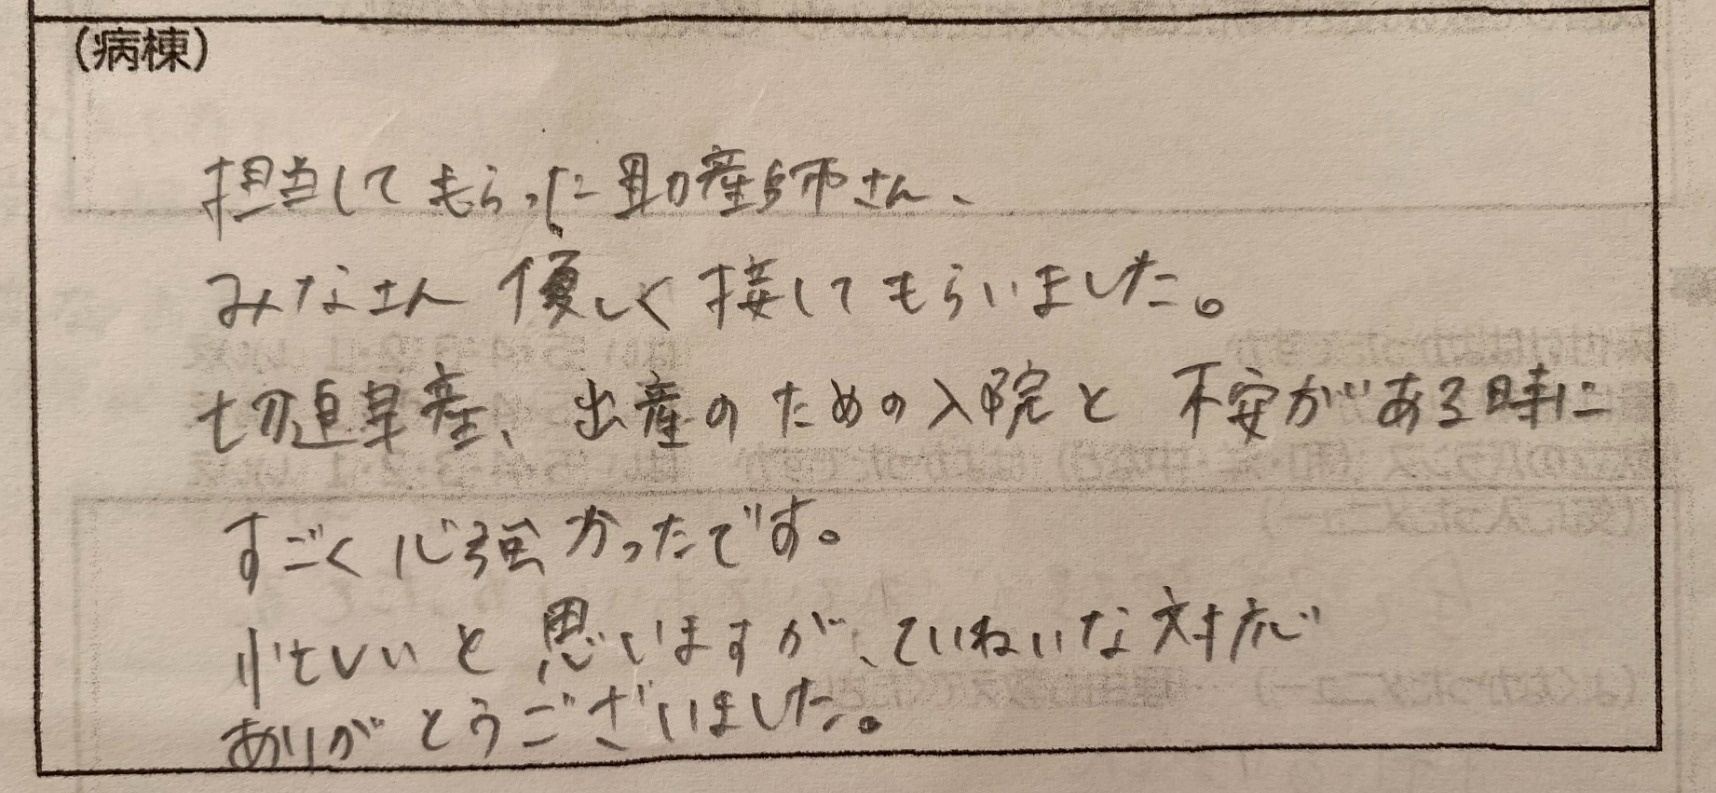 (病棟)
担当してもらった助産師さん、
みなさん優しく接してもらいました。
切迫早産、出産のための入院と不安がある時に
すごく心強かったです。
忙しいと思いますが、ていねいな対応
ありがとうございました。